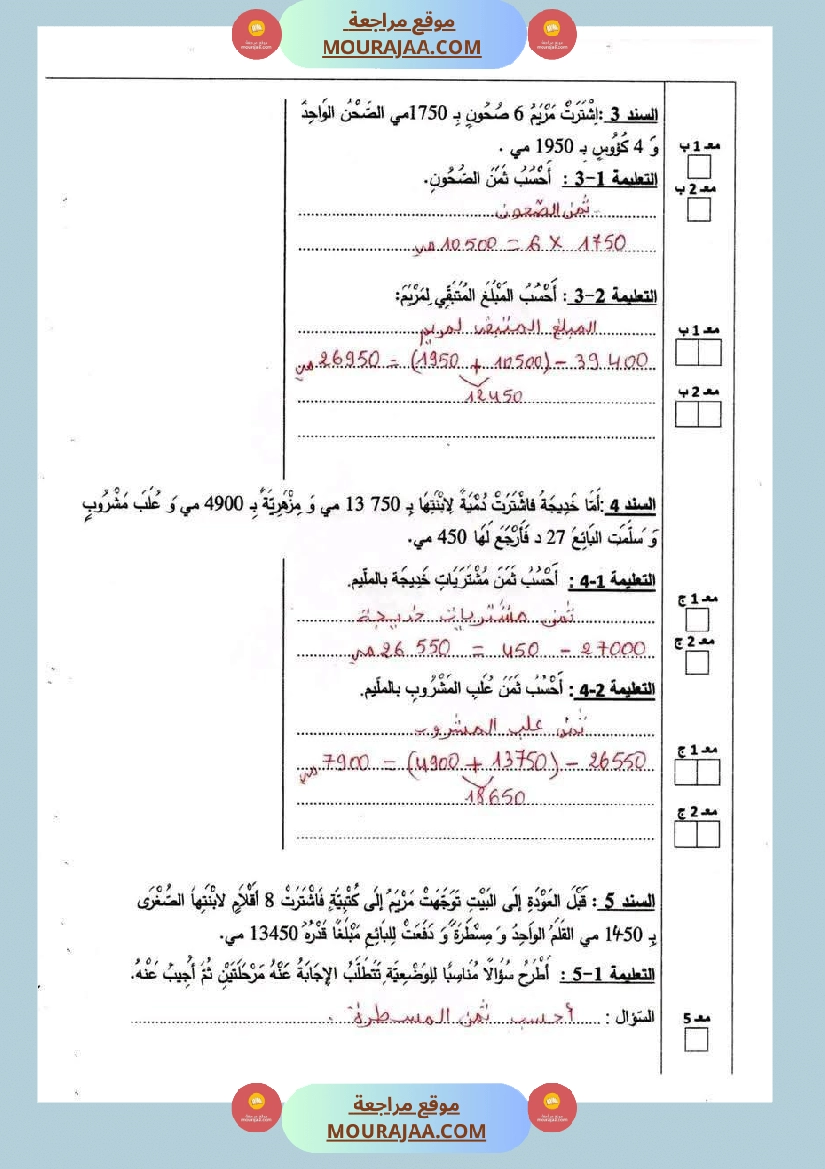 موقع مراجعة
MOURAJAA.COM
السند 3 :اِشْتَرَتْ مَرْيَمُ 6 صُحُونٍ بِـ 1750مي الصَّحْنُ الوَاحِدُ
وَ 4 كُؤُوسٍ بِـ 1950 مي .
معـ 1 ب
التعليمة 1-3 : أَحْسُبُ ثَمَنَ الصُّحُونِ.
معـ 2 ب
ثمن الصّحون
1750 × 6 = 10500 مي
التعليمة 2-3 : أَحْسُبُ المَبْلَغَ المُتَبَقِّي لِمَرْيَمَ:
معـ 1 ب
المبلغ المتبقي لمريم
39 400 - (10500 + 1950) = 26950 مي
معـ 2 ب
12450
السند 4 :أَمَّا خَدِيجَةُ فاشْتَرَتْ دُمْيَةً لِابْنَتِهَا بِـ 750 13 مي وَ مِزْهَرِيَّةً بِـ 4900 مي وَ عُلَبَ مَشْرُوبٍ
وَ سَلَّمَت البَائِعَ 27 د فَأَرْجَعَ لَهَا 450 مي.
التعليمة 1-4 : أَحْسُبُ ثَمَنَ مُشْتَرَيَاتِ خَدِيجَة بالملّيم.
معـ 1 ج
ثمن مشتريات خديجة
معـ 2 ج
27000 - 450 = 26 550 مي
التعليمة 2-4 : أَحْسُبُ ثَمَنَ عُلَبِ المَشْرُوبِ بالملّيم.
ثمن علب المشروب
معـ 1 ج
26550 - (13750 + 4900) = 7900 مي
18650
معـ 2 ج
السند 5 : قَبْلَ العَوْدَةِ إلَى البَيْتِ تَوَجَّهَتْ مَرْيَمُ إلَى كُتْبِيَّةٍ فَاشْتَرَتْ 8 أَقْلَامٍ لابْنَتِهاَ الصُّغْرَى
بِـ 1450 مي القَلَمُ الوَاحِدُ وَ مِسْطَرَةً وَ دَفَعَتْ لِلبَائِعِ مَبْلَغًا قَدْرُهُ 13450 مي.
التعليمة 1-5 : أَطْرَحُ سُؤَالًا مُنَاسِبًا لِلوَضْعِيَّةِ تَتَطَلَّبُ الإجَابَةُ عَنْهُ مَرْحَلَتَيْنِ ثُمَّ أُجِيبُ عَنْهُ.
السّؤال : أحسب ثمن المسطرة .
معـ 5
موقع مراجعة
MOURAJAA.COM